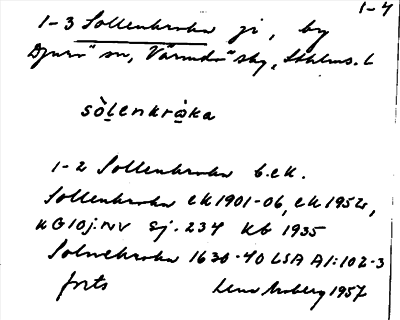 1-4
1-3 Sollenkroka gi, by
Djurö sn, Värmdö skg, Sthlms. l
sòlenkråka
1-2 Sollenkroka b. ek.
Sollenkroka ek 1901-06, ek 1952,
KG 10j: NV Sj. 234 KG 1935
Solnekroka 1630-40 LSA A1:102-3
forts Lena Moberg 1957